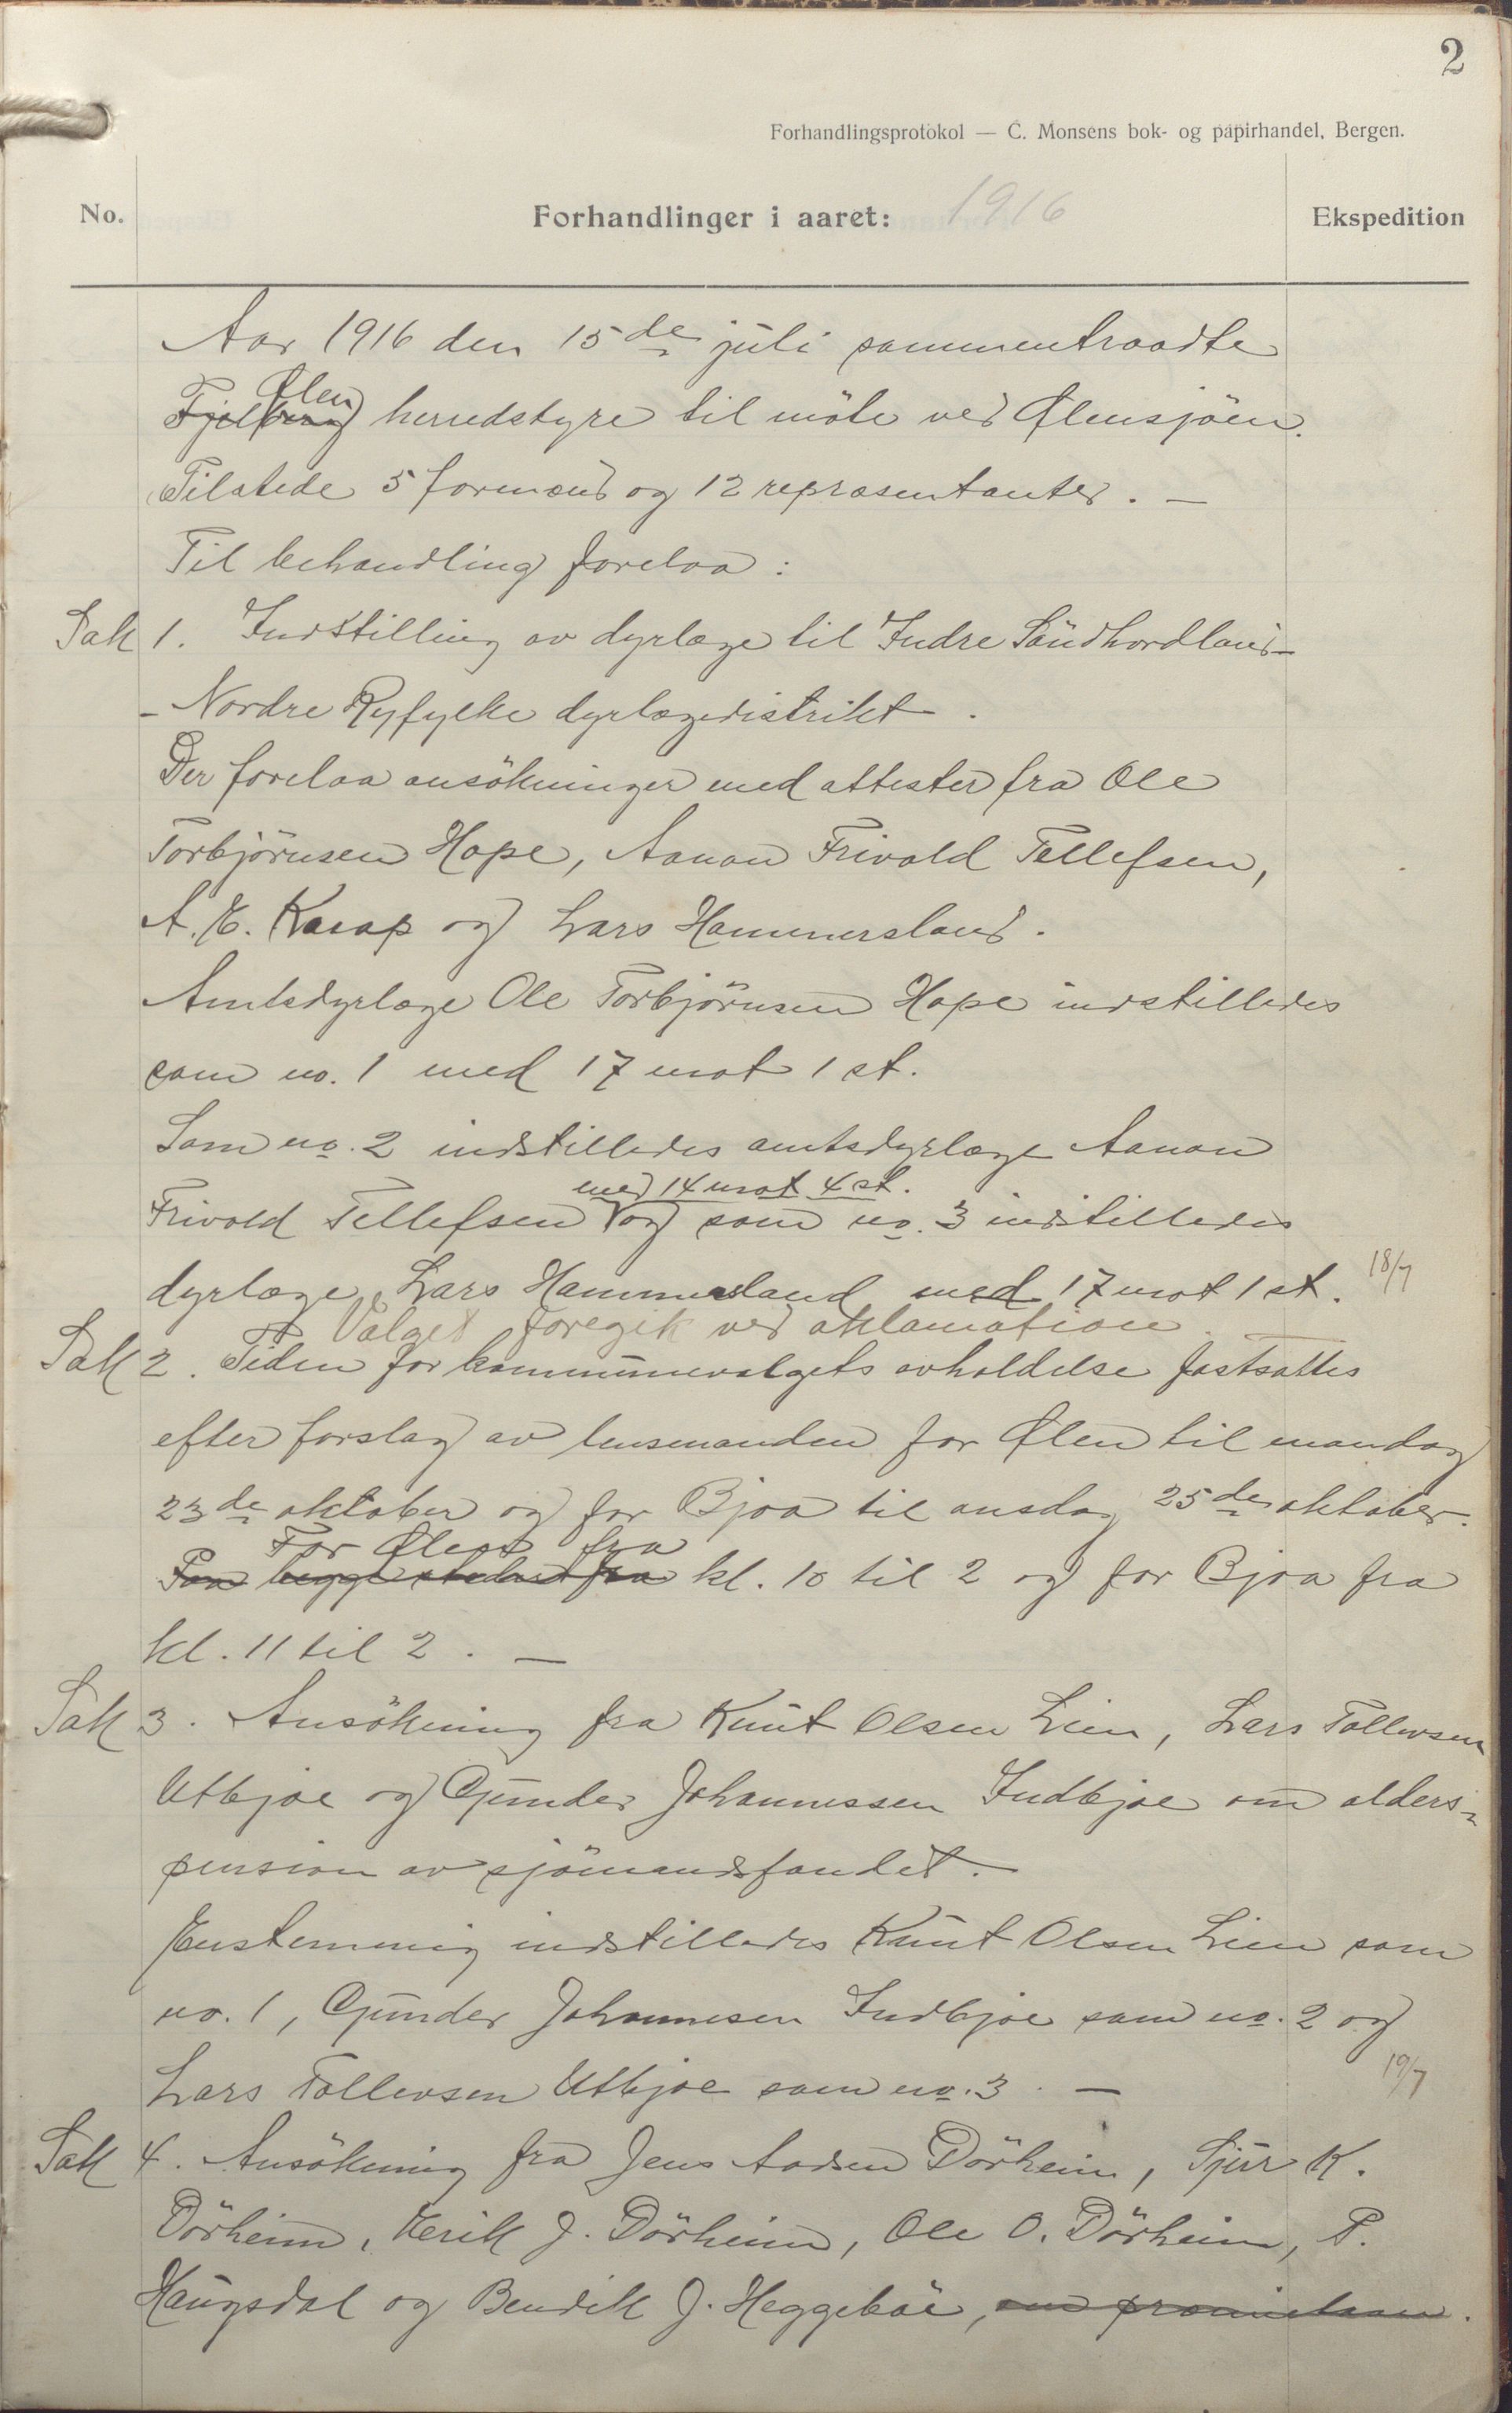 2
Forhandlingsprotokol — C. Monsens bok- og papirhandel, Bergen.
No. Forhandlinger i aaret: 1916 Ekspedition
Aar 1916 den 15de juli sammentraadte
Ølen
Fjelberg herredstyre til møte ved Ølensjöen.
Tilstede 5 formænd og 12 repræsentanter. —
Til behandling forelaa:
Sak 1. Indstilling av dyrlæge til Indre Söndhordland-
- Nordre Ryfylke dyrlægedistrikt.
Der forelaa ansökninger med attester fra Ole
Torbjörnsen Hope, Aanon Frivold Tellefsen,
A. E. Karap og Lars Hammersland.
Amtsdyrlæge Ole Torbjörnsen Hope indstilledes
som no. 1 med 17 mot 1 st.
Som no. 2 indstilledes amtsdyrlæge Aanon
med 14 mot 4 st.
Frivold Tellefsen og som no. 3 indstilledes
dyrlæge Lars Hammersland med 17 mot 1 st. 18/7
Valget foregik ved aklamation.
Sak 2. Tiden for kommunevalgets avholdelse fastsattes
efter forslag av lensmanden for Ølen til mandag
23de oktober og for Bjoa til onsdag 25de oktober.
For Ølen fra
Paa begge steder fra kl. 10 til 2 og for Bjoa fra
kl. 11 til 2. —
Sak 3. Ansökning fra Knut Olsen Lien, Lars Tollevsen
Utbjoe og Gunder Johannessen Indbjoe om alders-
pension av sjömandsfondet.
Enstemmig indstilledes Knut Olsen Lien som
no. 1, Gunder Johannesen Indbjoe som no. 2 og
Lars Tollevsen Utbjoe som no. 3. — 19/7
Sak 4. Ansökning fra Jens Aadsen Dörheim, Sjur K.
Dörheim, Eerik J. Dörheim, Ole O. Dörheim, P.
Haugsdal og Bendik J. Heggeböe, om præmielaan.